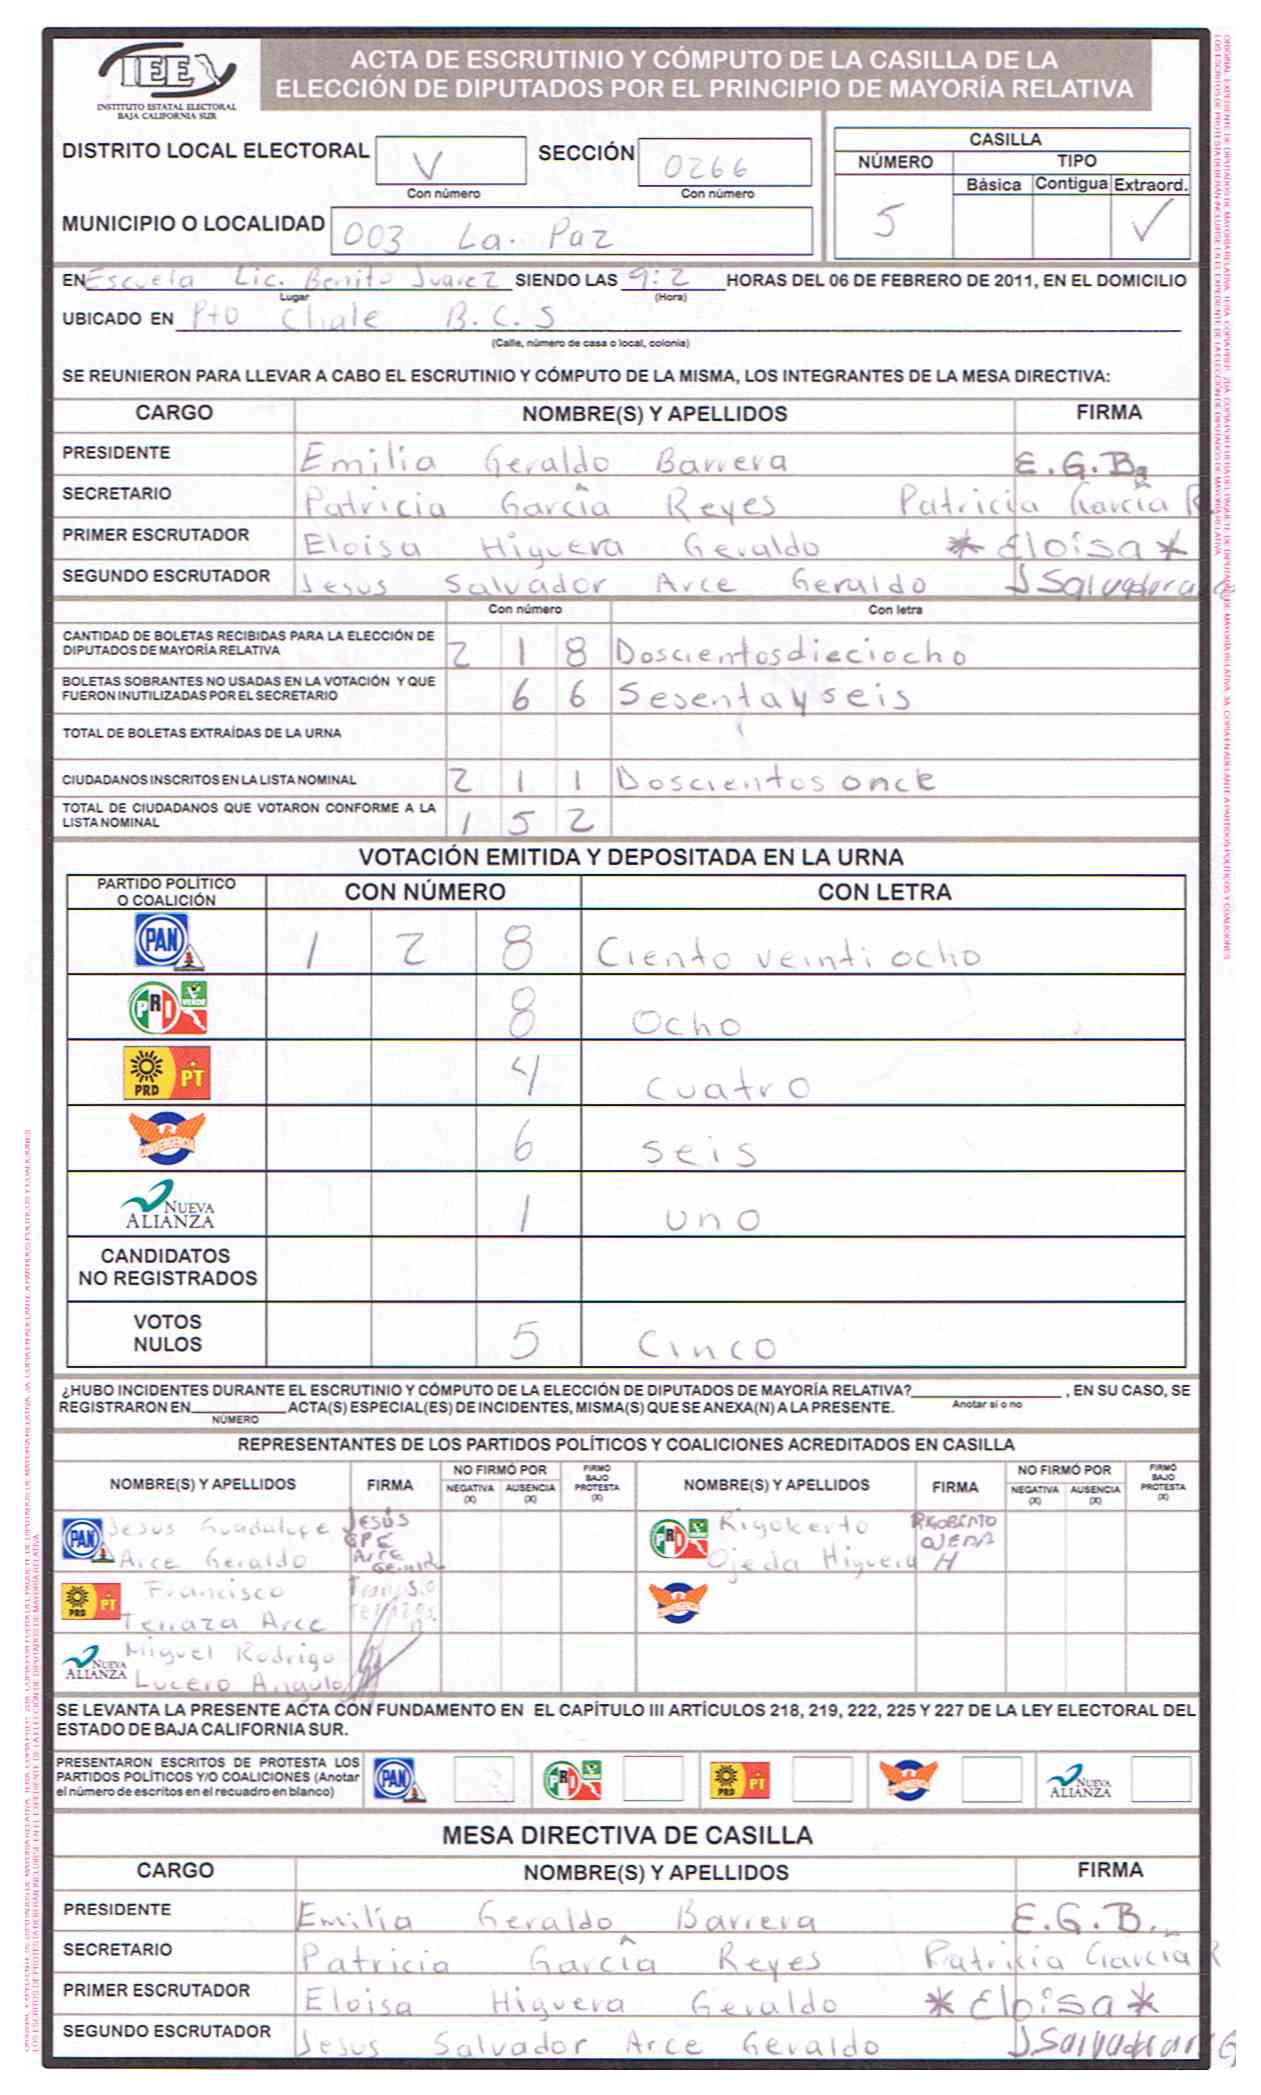 IEE
INSTITUTO ESTATAL ELECTORAL
BAJA CALIFORNIA SUR
ACTA DE ESCRUTINIO Y CÓMPUTO DE LA CASILLA DE LA
ELECCIÓN DE DIPUTADOS POR EL PRINCIPIO DE MAYORÍA RELATIVA
DISTRITO LOCAL ELECTORAL V SECCIÓN 0266
Con número Con número
MUNICIPIO O LOCALIDAD 003 La. Paz
CASILLA
NÚMERO TIPO
Básica Contigua Extraord.
5 ✓
EN Escuela Lic. Benito Juarez SIENDO LAS 9:2 HORAS DEL 06 DE FEBRERO DE 2011, EN EL DOMICILIO
Lugar (Hora)
UBICADO EN Pto Chale B.C.S
(Calle, número de casa o local, colonia)
SE REUNIERON PARA LLEVAR A CABO EL ESCRUTINIO Y CÓMPUTO DE LA MISMA, LOS INTEGRANTES DE LA MESA DIRECTIVA:
CARGO NOMBRE(S) Y APELLIDOS FIRMA
PRESIDENTE Emilia Geraldo Barrera E.G.B.
SECRETARIO Patricia García Reyes Patricia García R
PRIMER ESCRUTADOR Eloisa Higuera Geraldo *Eloisa*
SEGUNDO ESCRUTADOR Jesus Salvador Arce Geraldo
Con número Con letra
CANTIDAD DE BOLETAS RECIBIDAS PARA LA ELECCIÓN DE
DIPUTADOS DE MAYORÍA RELATIVA 2 1 8 Doscientosdieciocho
BOLETAS SOBRANTES NO USADAS EN LA VOTACIÓN Y QUE
FUERON INUTILIZADAS POR EL SECRETARIO 6 6 Sesentayseis
TOTAL DE BOLETAS EXTRAÍDAS DE LA URNA
CIUDADANOS INSCRITOS EN LA LISTA NOMINAL 2 1 1 Doscientos once
TOTAL DE CIUDADANOS QUE VOTARON CONFORME A LA
LISTA NOMINAL 1 5 2
VOTACIÓN EMITIDA Y DEPOSITADA EN LA URNA
PARTIDO POLÍTICO
O COALICIÓN CON NÚMERO CON LETRA
PAN 1 2 8 Ciento veinti ocho
PRI VERDE 8 Ocho
PRD PT 4 cuatro
CONVERGENCIA 6 seis
NUEVA
ALIANZA 1 uno
CANDIDATOS
NO REGISTRADOS
VOTOS
NULOS 5 Cinco
¿HUBO INCIDENTES DURANTE EL ESCRUTINIO Y CÓMPUTO DE LA ELECCIÓN DE DIPUTADOS DE MAYORÍA RELATIVA? , EN SU CASO, SE
Anotar si o no
REGISTRARON EN ACTA(S) ESPECIAL(ES) DE INCIDENTES, MISMA(S) QUE SE ANEXA(N) A LA PRESENTE.
NÚMERO
REPRESENTANTES DE LOS PARTIDOS POLÍTICOS Y COALICIONES ACREDITADOS EN CASILLA
NOMBRE(S) Y APELLIDOS FIRMA NO FIRMÓ POR NEGATIVA (X) AUSENCIA (X) FIRMÓ BAJO PROTESTA (X) NOMBRE(S) Y APELLIDOS FIRMA NO FIRMÓ POR NEGATIVA (X) AUSENCIA (X) FIRMÓ BAJO PROTESTA (X)
PAN Jesus Guadalupe Arce Geraldo JESÚS GPE Arce Gerald PRI VERDE Rigoberto Ojeda Higuera RIGOBERTO OJEDA H
PRD PT Francisco Terraza Arce CONVERGENCIA
NUEVA ALIANZA Miguel Rodrigo Lucero Angulo
SE LEVANTA LA PRESENTE ACTA CON FUNDAMENTO EN EL CAPÍTULO III ARTÍCULOS 218, 219, 222, 225 Y 227 DE LA LEY ELECTORAL DEL
ESTADO DE BAJA CALIFORNIA SUR.
PRESENTARON ESCRITOS DE PROTESTA LOS
PARTIDOS POLÍTICOS Y/O COALICIONES (Anotar
el número de escritos en el recuadro en blanco) PAN PRI VERDE PRD PT CONVERGENCIA NUEVA ALIANZA
MESA DIRECTIVA DE CASILLA
CARGO NOMBRE(S) Y APELLIDOS FIRMA
PRESIDENTE Emilia Geraldo Barrera E.G.B.
SECRETARIO Patricia García Reyes Patricia García R
PRIMER ESCRUTADOR Eloisa Higuera Geraldo *Eloisa*
SEGUNDO ESCRUTADOR Jesus Salvador Arce Geraldo